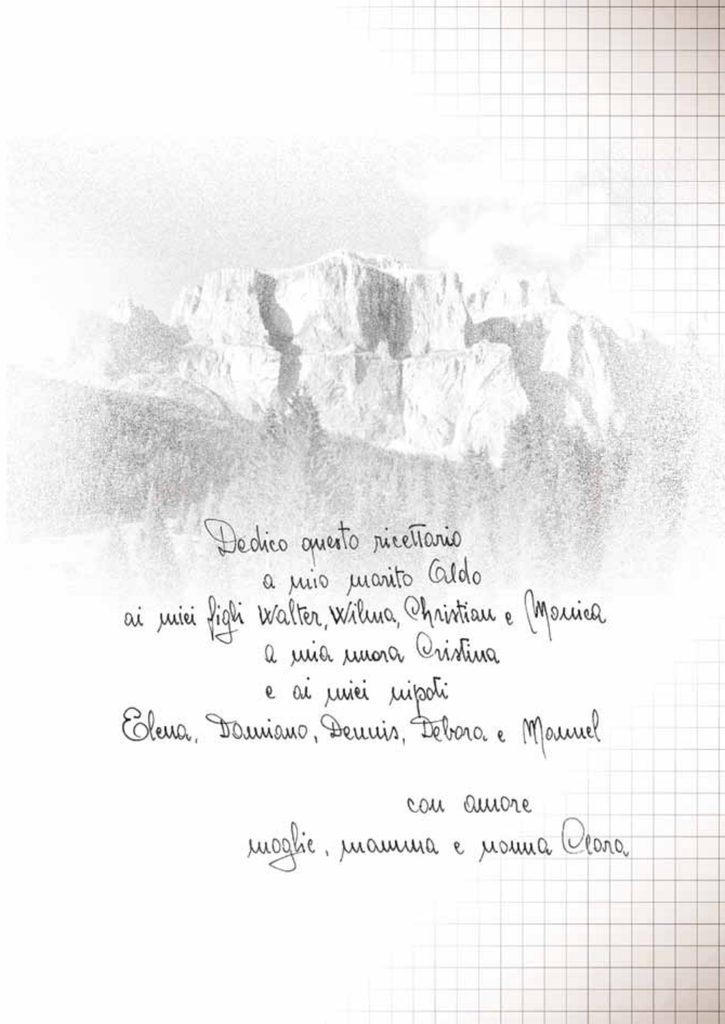 Dedico questo ricettario
a mio marito Aldo
ai miei figli Walter, Wilma, Christian e Monica
a mia nuora Cristina
e ai miei nipoti
Elena, Damiano, Dennis, Debora e Manuel
con amore
moglie, mamma e nonna Clara